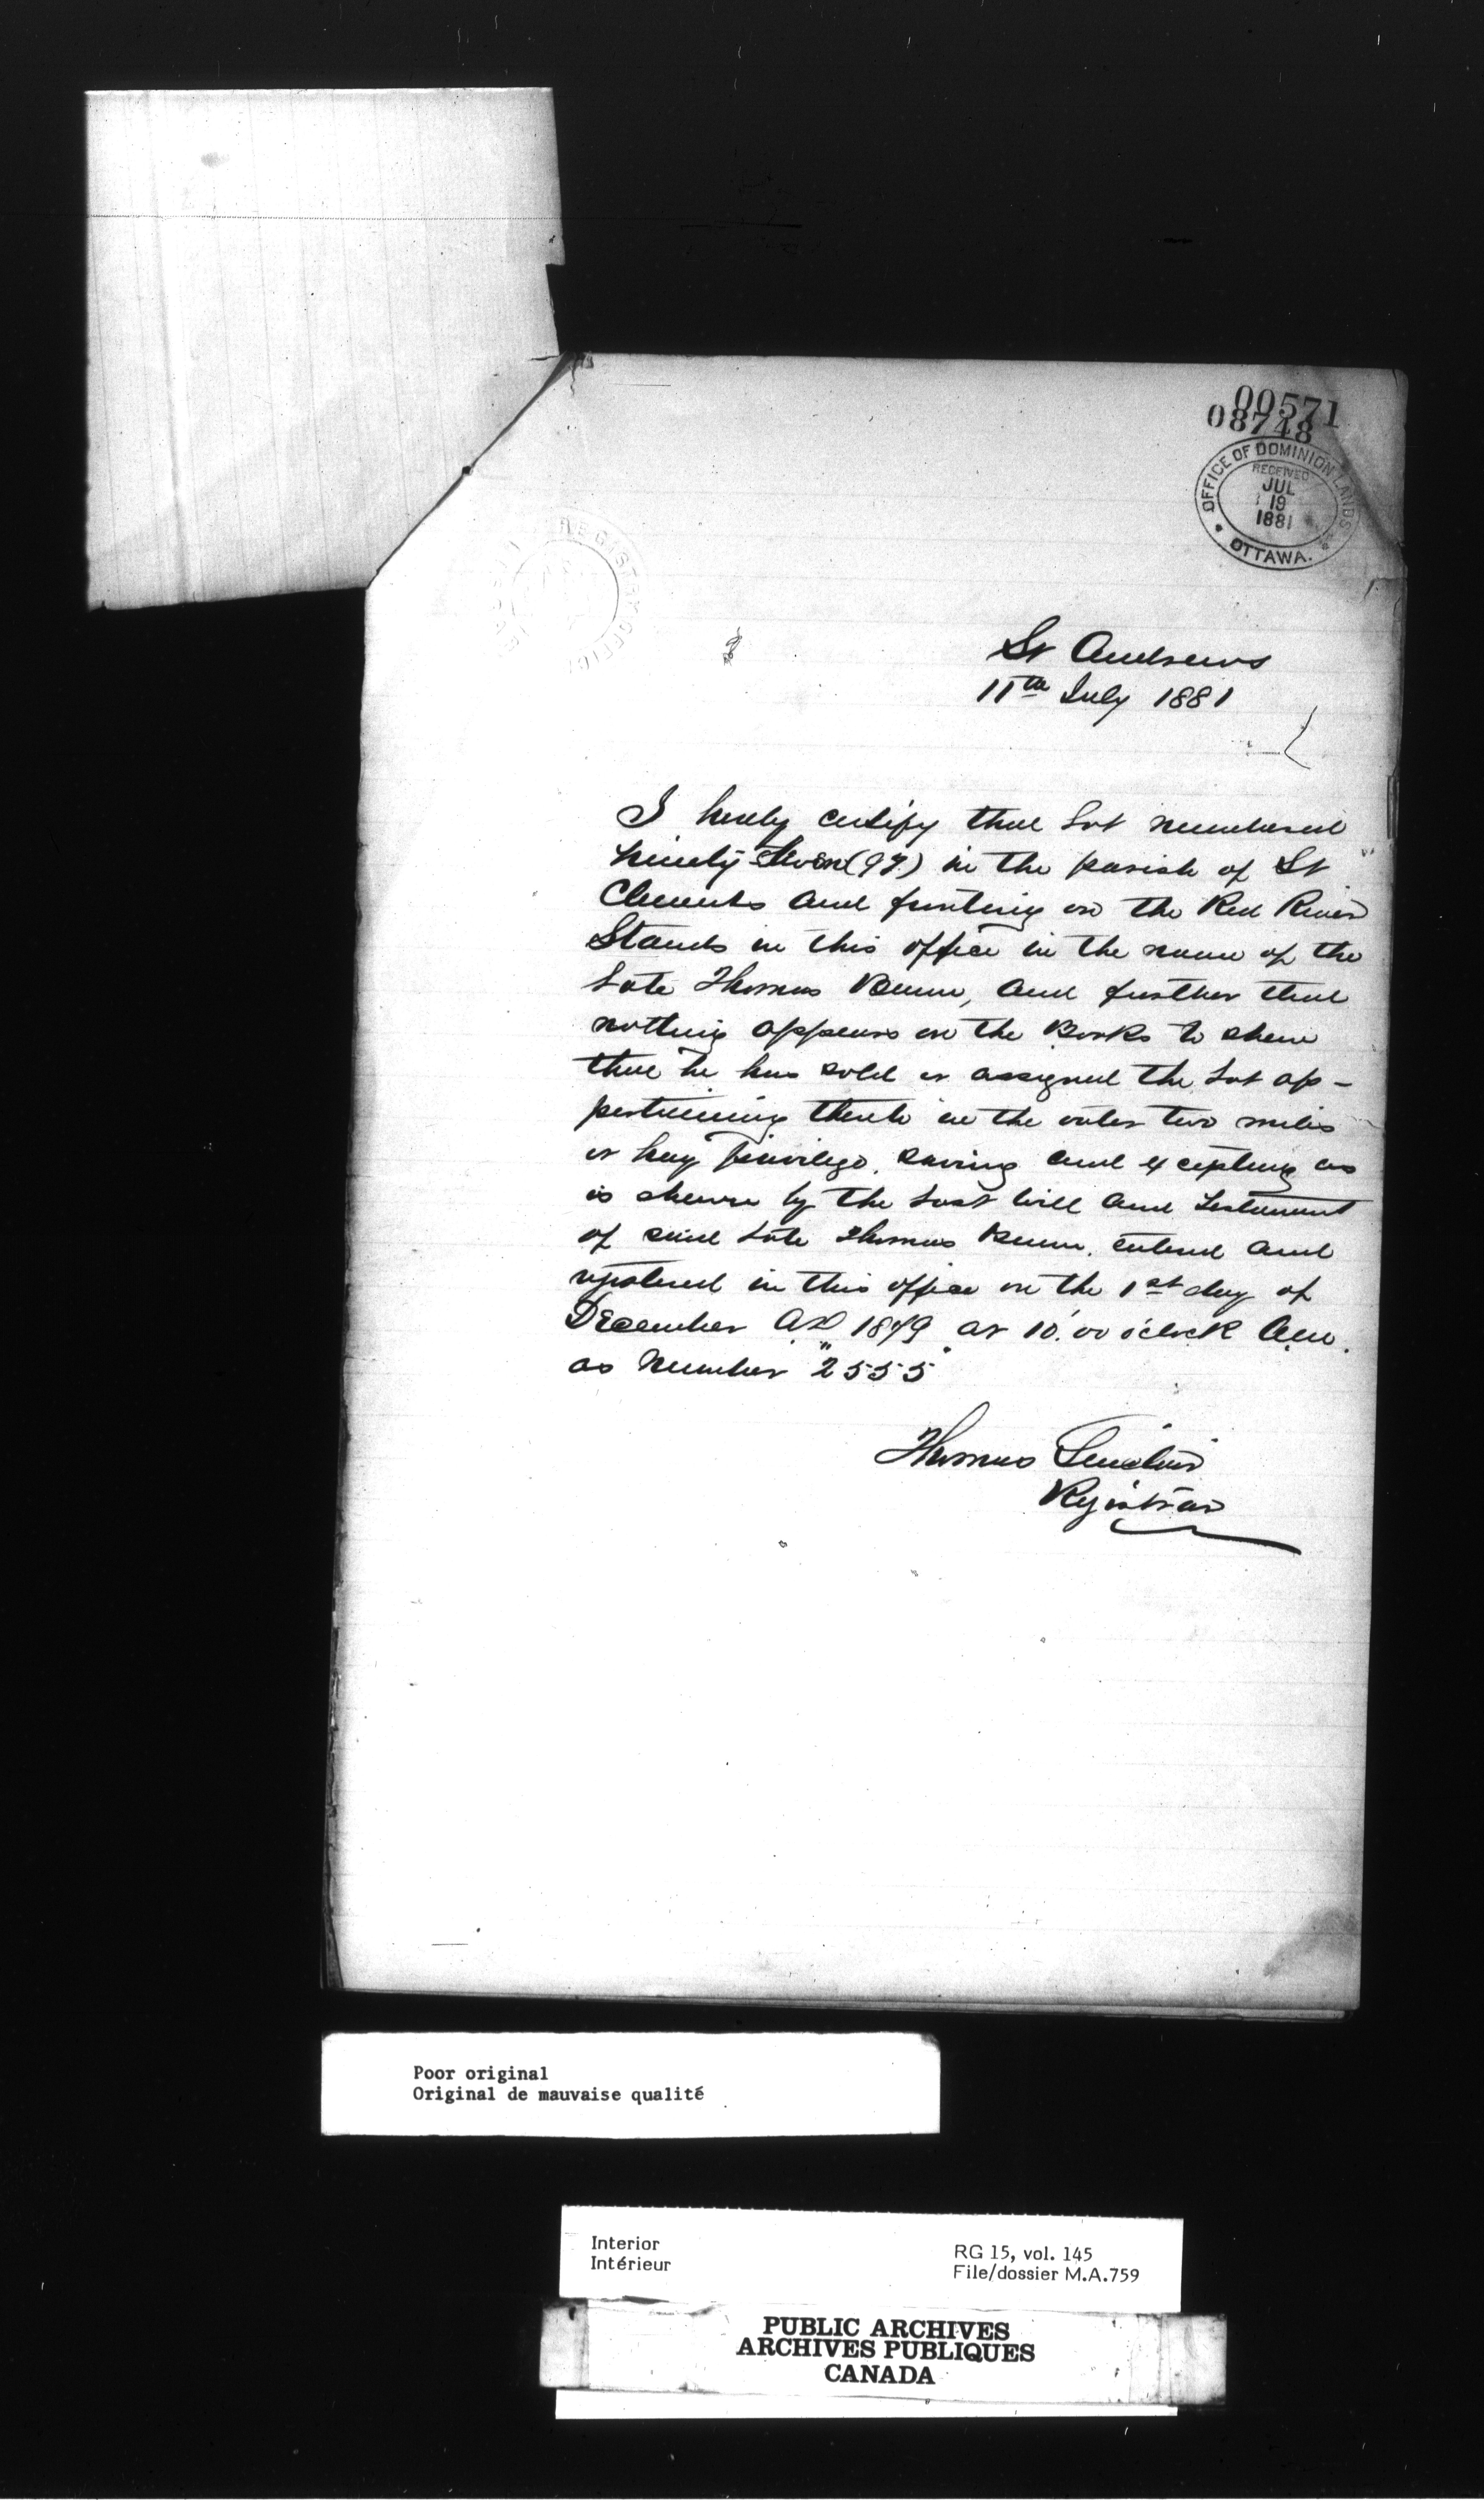 00571
08748
OFFICE OF DOMINION LANDS
RECEIVED
JUL
19
1881
OTTAWA.
REGISTRY OFFICE
St Andrews
11th July 1881
I hereby certify that Lot numbered
Ninety Seven (97) in the parish of St
Clements and fronting on the Red River
Stands in this office in the name of the
Late Thomas Bunn, and further that
nothing appears on the Books to shew
that he has sold or assigned the Lot ap-
pertaining thereto in the outer two miles
or hay privilege, saving and excepting as
is shewn by the Last Will and Testament
of said Late Thomas Bunn, entered and
registered in this office on the 1st day of
December A.D. 1879 at 10.00 o'clock A.m.
as Number "2555"
Thomas Sinclair
Registrar
Poor original
Original de mauvaise qualité
Interior
Intérieur
RG 15, vol. 145
File/dossier M.A.759
PUBLIC ARCHIVES
ARCHIVES PUBLIQUES
CANADA